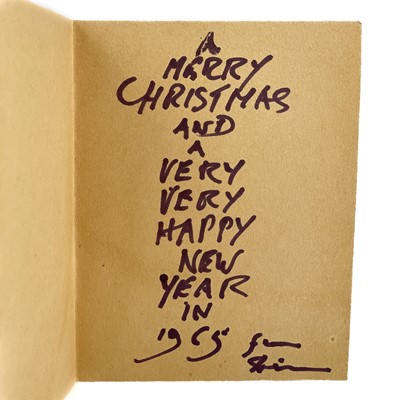 A
MERRY
CHRISTMAS
AND
A
VERY
VERY
HAPPY
NEW
YEAR
IN
1965